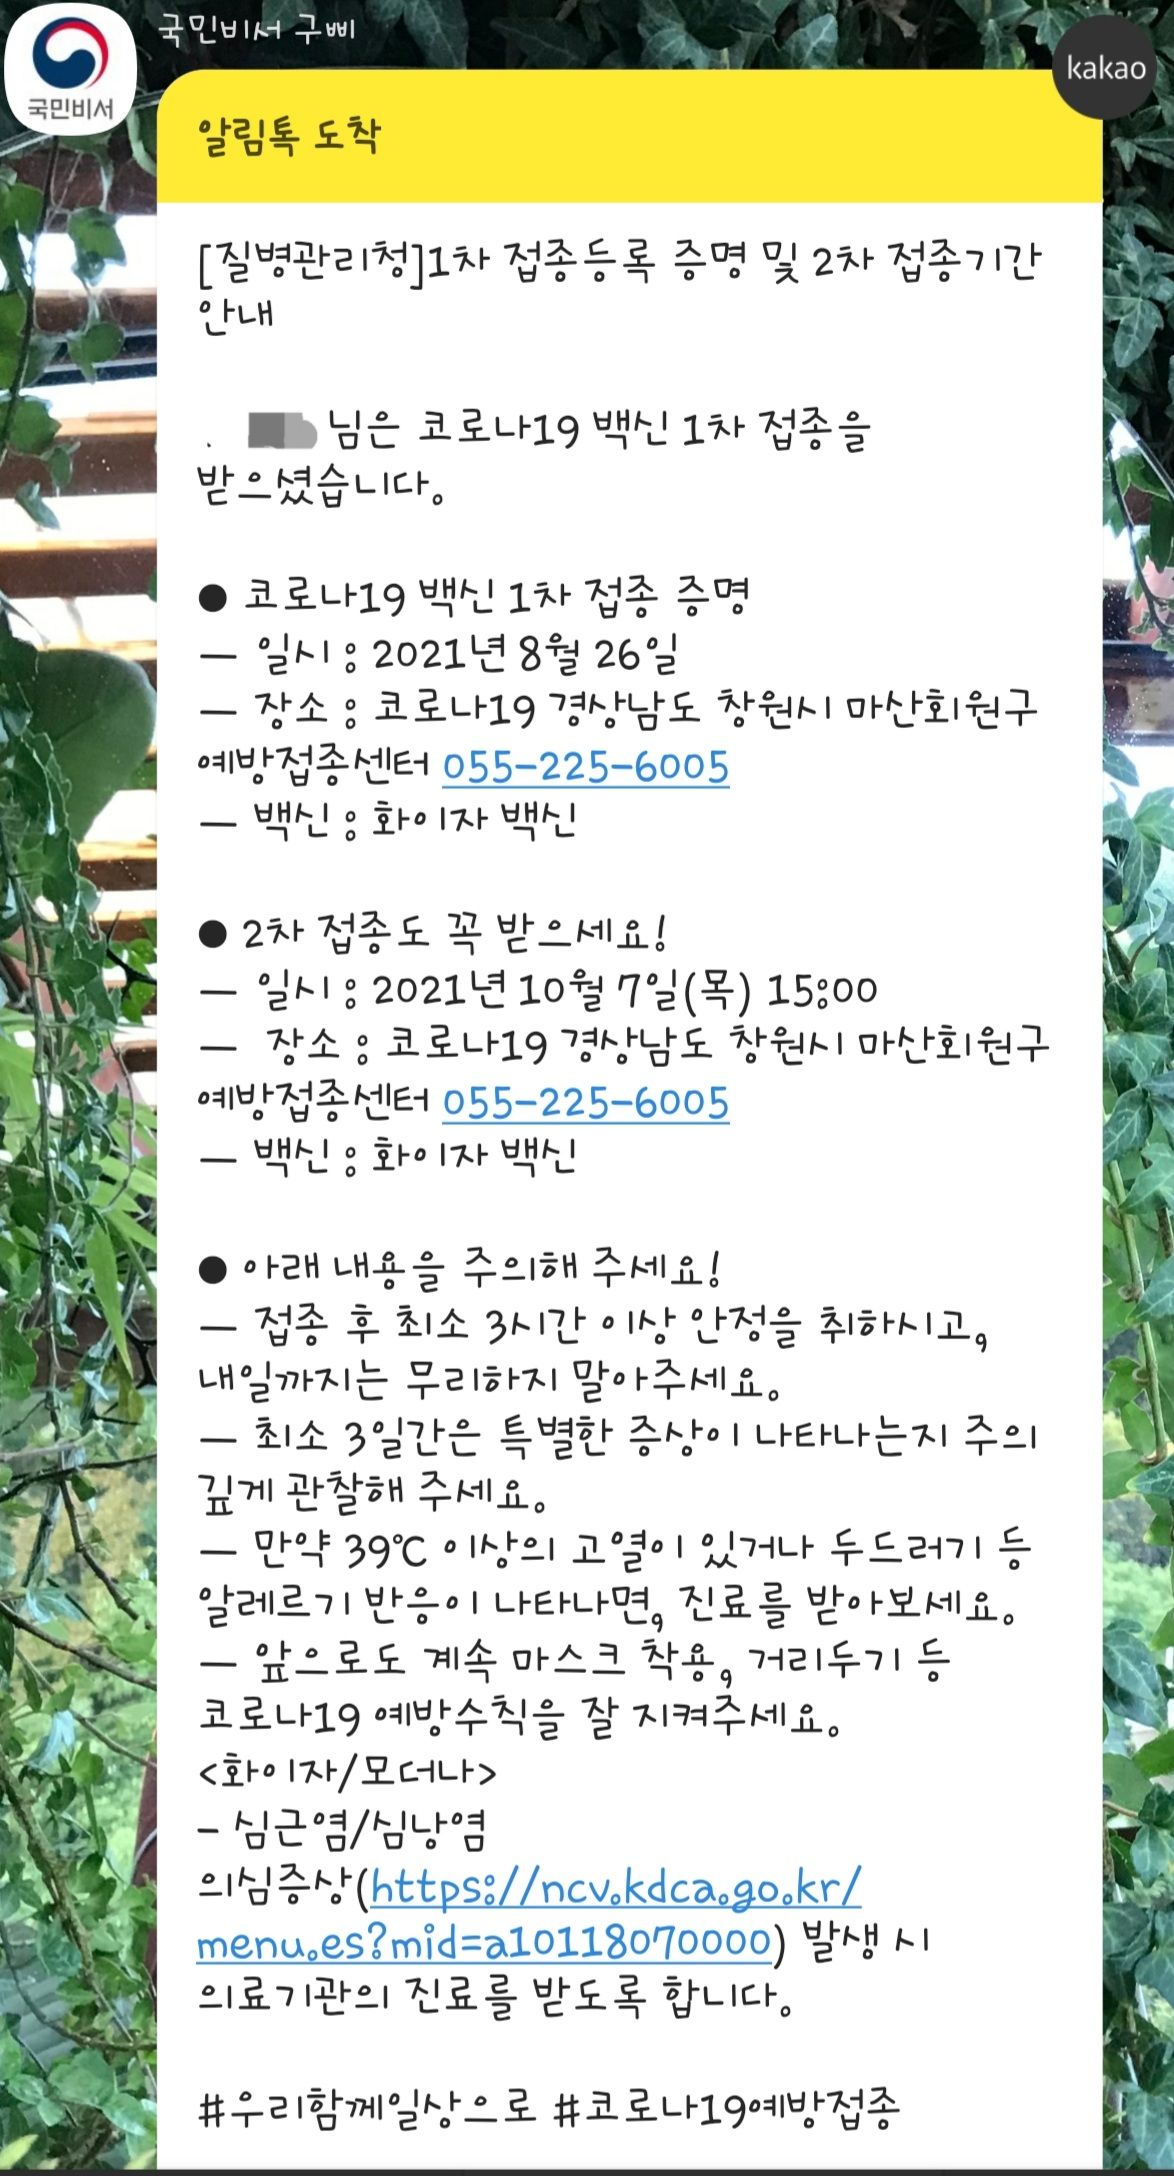 국민비서 구삐
국민비서
kakao
알림톡 도착
[질병관리청]1차 접종등록 증명 및 2차 접종기간
안내
. 님은 코로나19 백신 1차 접종을
받으셨습니다.
● 코로나19 백신 1차 접종 증명
— 일시 : 2021년 8월 26일
— 장소 : 코로나19 경상남도 창원시 마산회원구
예방접종센터 055-225-6005
— 백신 : 화이자 백신
● 2차 접종도 꼭 받으세요!
— 일시 : 2021년 10월 7일(목) 15:00
— 장소 : 코로나19 경상남도 창원시 마산회원구
예방접종센터 055-225-6005
— 백신 : 화이자 백신
● 아래 내용을 주의해 주세요!
— 접종 후 최소 3시간 이상 안정을 취하시고,
내일까지는 무리하지 말아주세요.
— 최소 3일간은 특별한 증상이 나타나는지 주의
깊게 관찰해 주세요.
— 만약 39℃ 이상의 고열이 있거나 두드러기 등
알레르기 반응이 나타나면, 진료를 받아보세요.
— 앞으로도 계속 마스크 착용, 거리두기 등
코로나19 예방수칙을 잘 지켜주세요.
<화이자/모더나>
- 심근염/심낭염
의심증상(https://ncv.kdca.go.kr/
menu.es?mid=a10118070000) 발생 시
의료기관의 진료를 받도록 합니다.
#우리함께일상으로 #코로나19예방접종